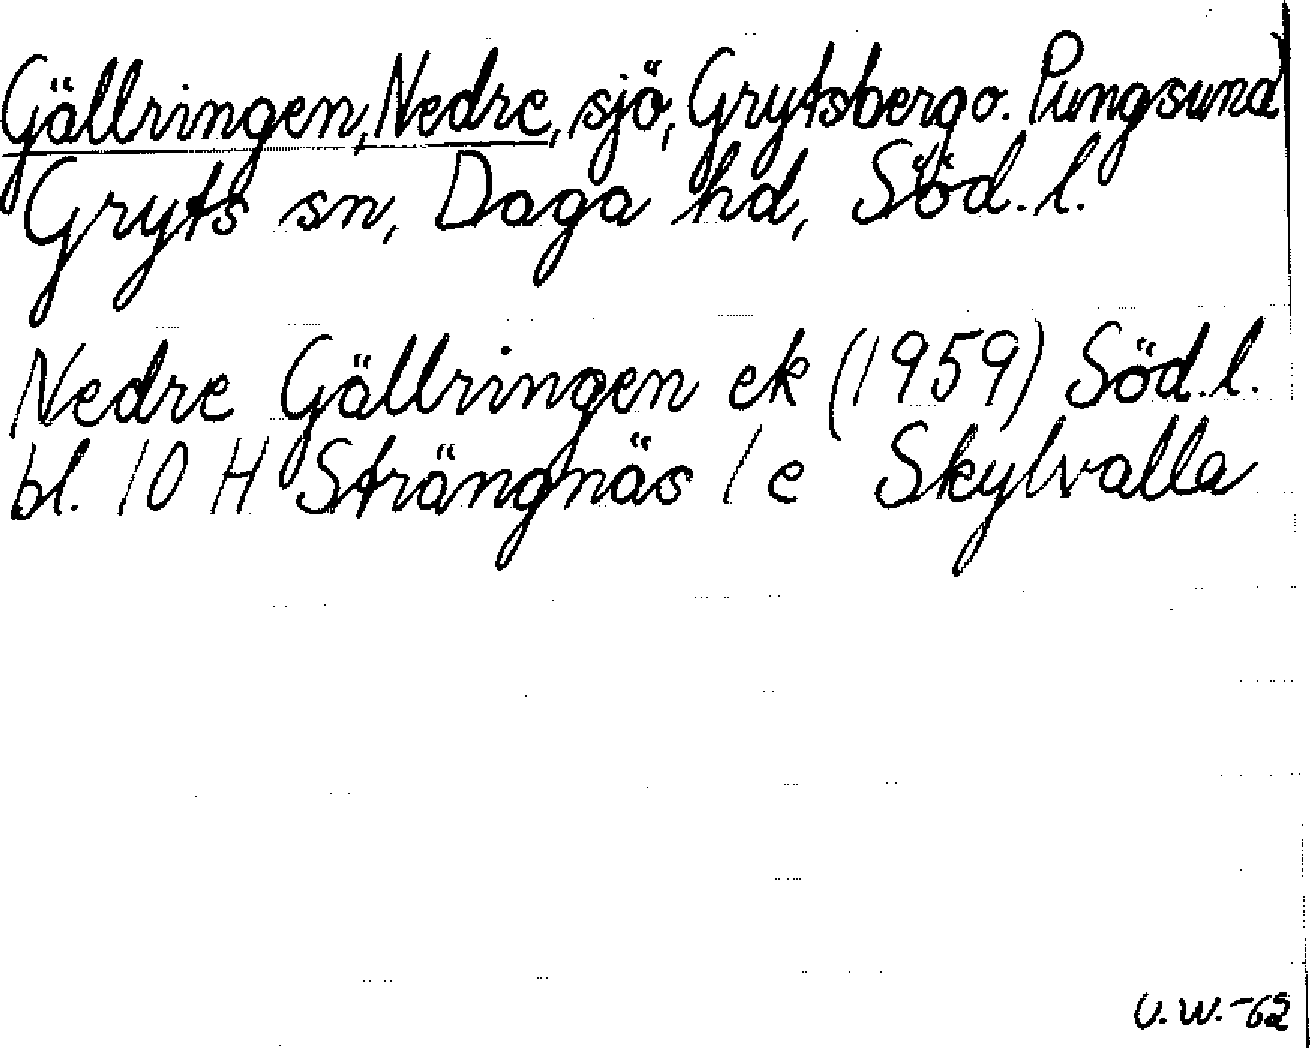 Gällringen, Nedre, sjö, Grytsberg o. Pungsund
Gryts sn, Daga hd, Söd. l.
Nedre Gällringen ek (1959) Söd. l.
bl. 10 H Strängnäs 1 e Skylvalla
U.W.-62